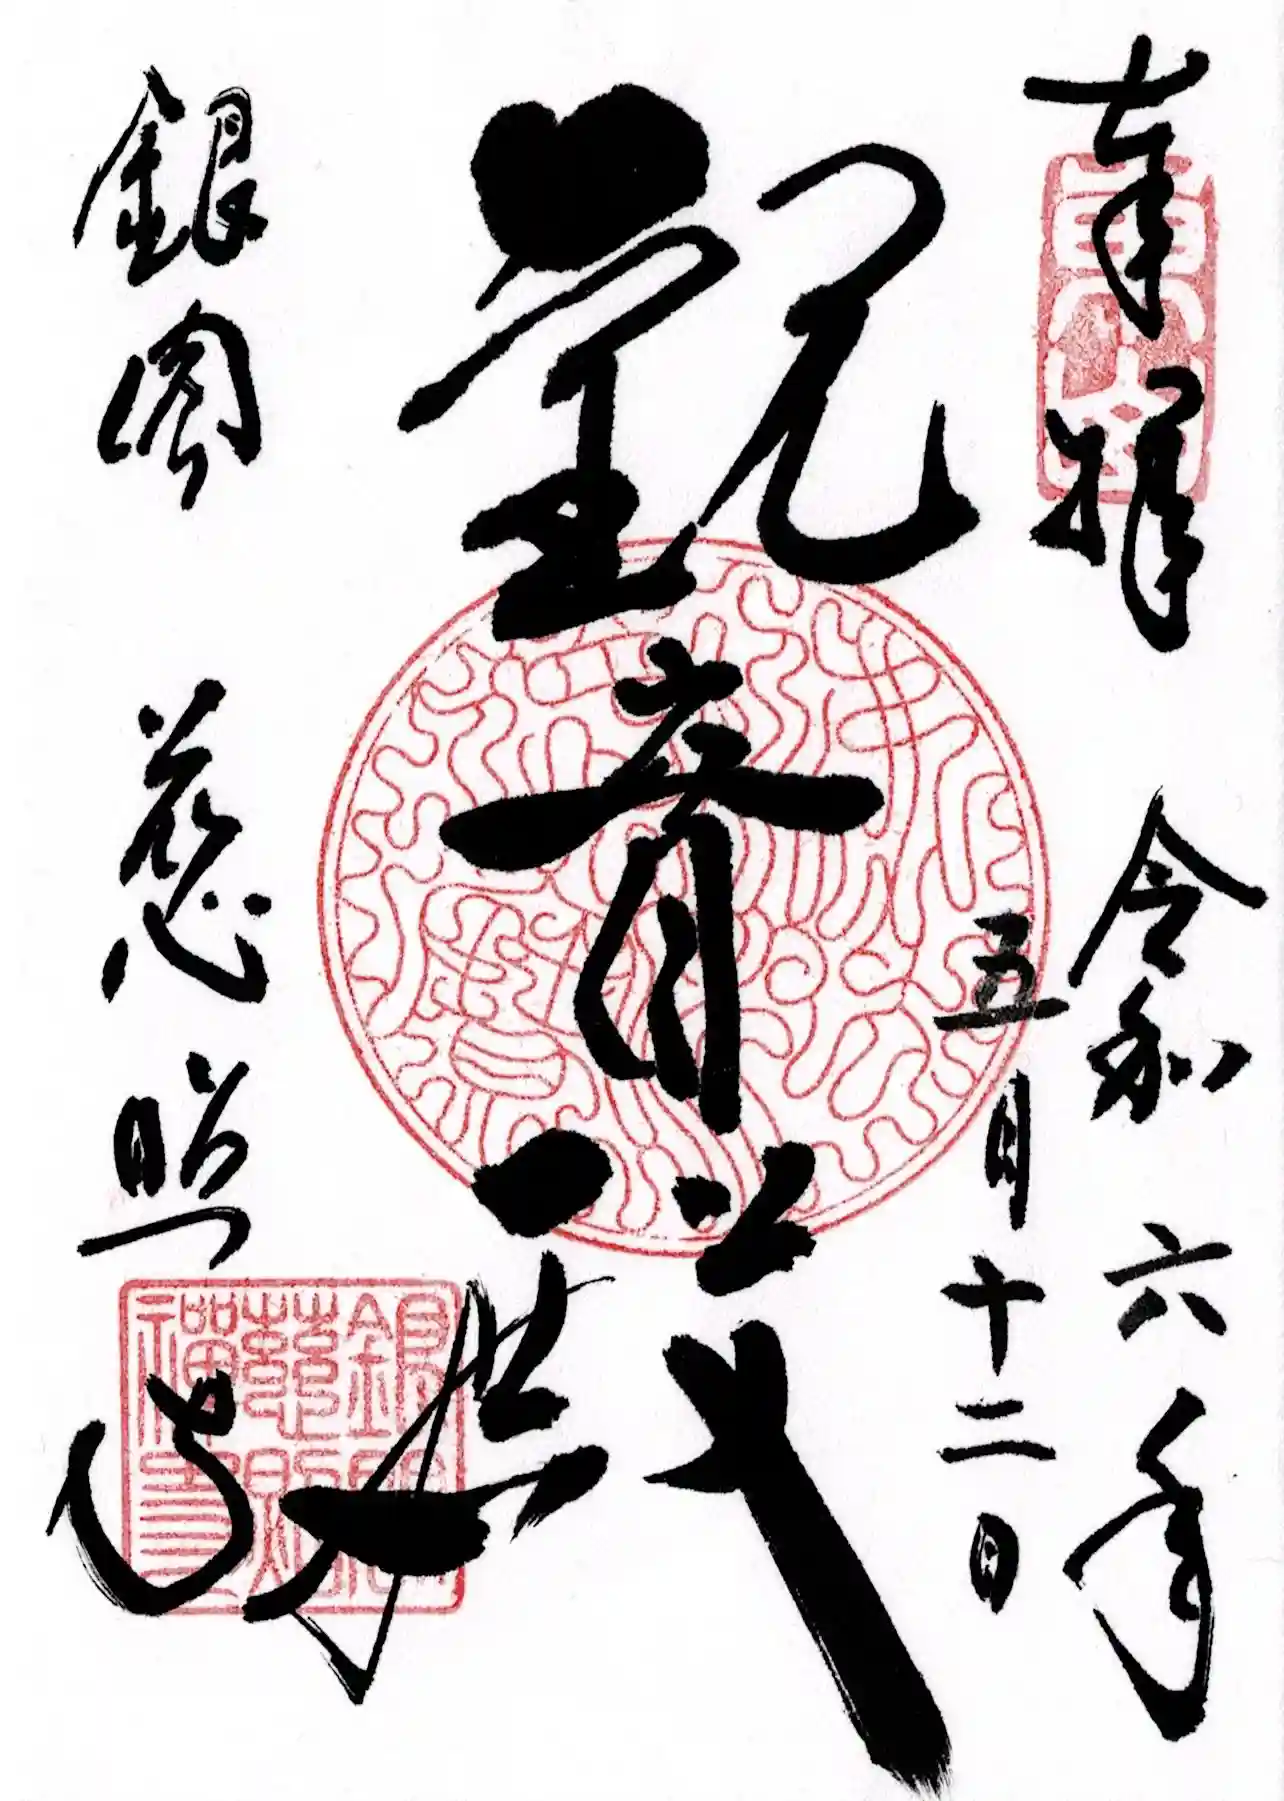 奉拝
令和六年
五月十二日
観音殿
銀閣 慈照寺
東山
銀閣
慈照
禅寺